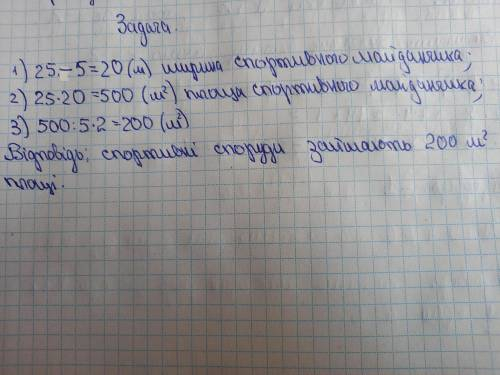 Задача.
1) 25-5=20 (м) ширина спортивного майданчика;
2) 25·20=500 (м²) площа спортивного майданчика;
3) 500:5·2=200 (м²)
Відповідь: спортивні споруди займають 200 м²
площі.